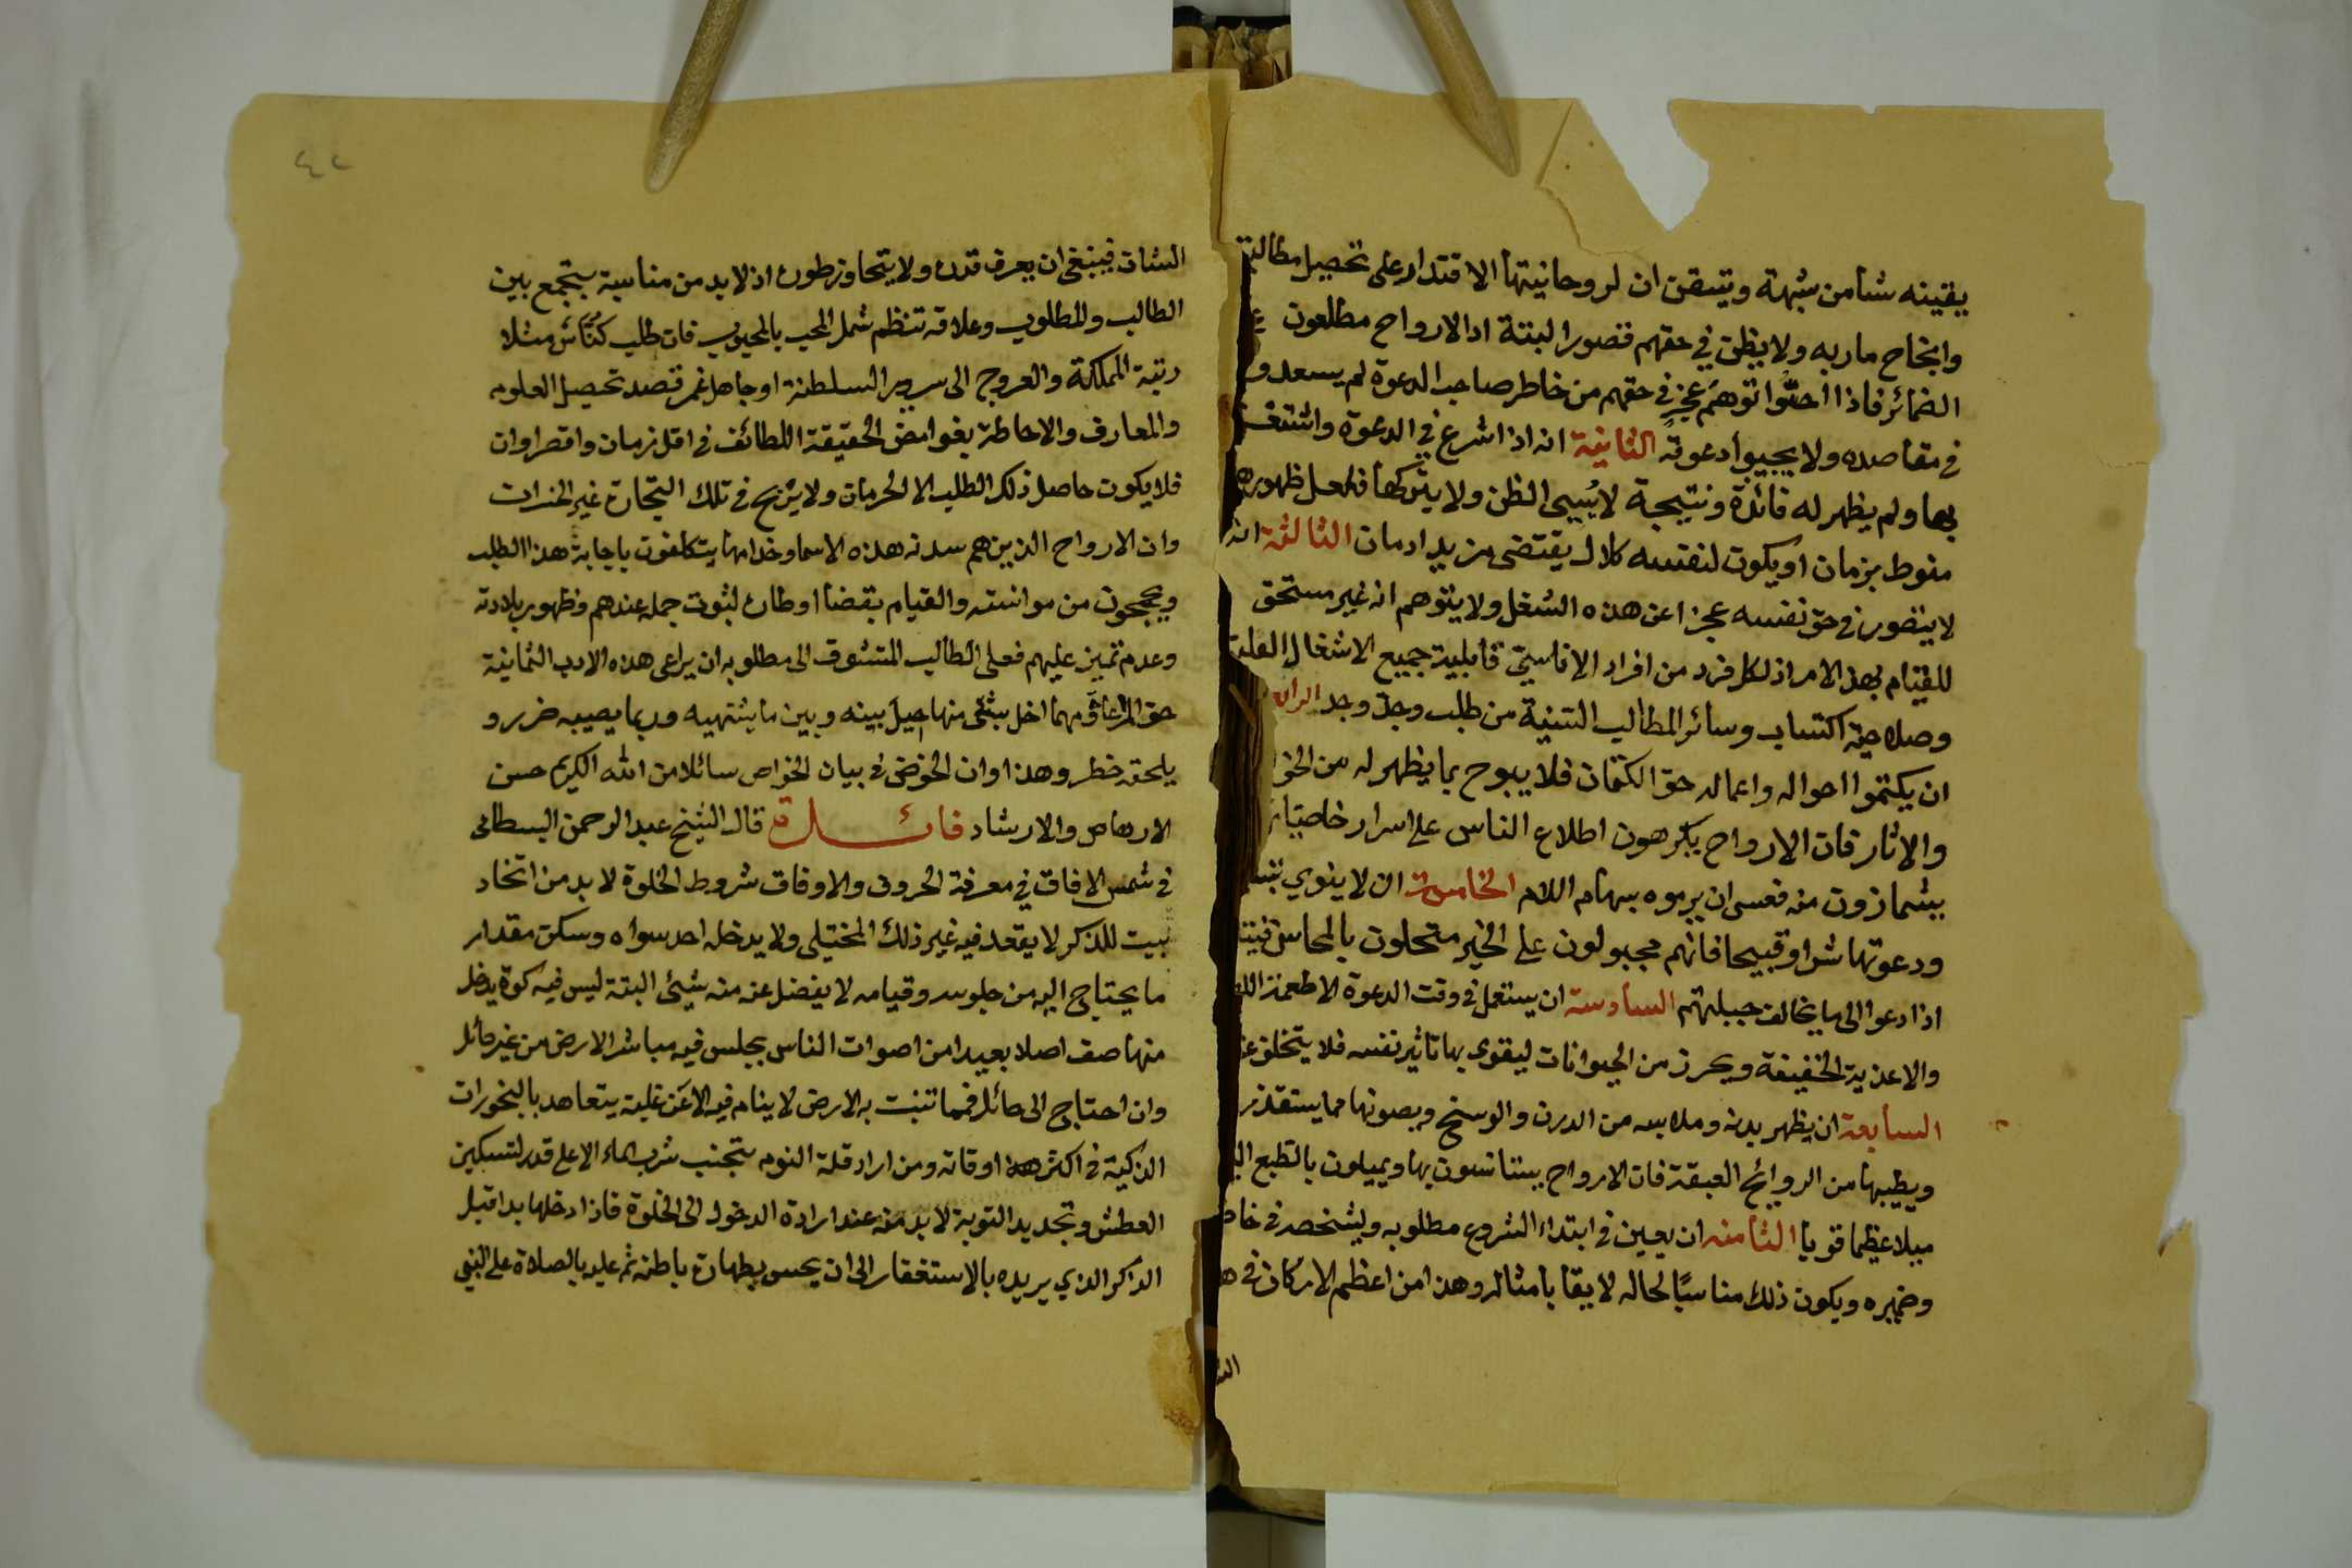 يقينه شأ من شبهة وتيقن ان لروحانيتها الاقتدار على تحصيل مطالبه
وانجاح ماربه ولا يظن في حقهم قصورا البتة اذ الارواح مطلعون
الضمائر فاذا احسّوا توهم عجز في حقهم من خاطر صاحب الدعوة لم يسعدو
في مقاصده ولا يجيبوا دعوته الثانية انه اذا شرع في الدعوة واشتغل
بها ولم يظهر له فائدة ونتيجة لا يسيئ الظن ولا يتركها فلعل ظهوره
منوط بزمان او يكون لنفسه كلال يقتضى مزيد ادمان الثالثة انه
لا يتصور في حق نفسه عجزا عن هذه الشغل ولا يتوهم انه غير مستحق
للقيام بهذا الامر اذ لكل فرد من افراد الانا سيّ قابلية جميع الاشغال العلية
وصلاحية اكتساب وسائر المطالب السنية من طلب وجدّ وجد الرابعة
ان يكتموا احواله واعماله حق الكتمان فلا يبوح بما يظهر له من الخوا
والاثار فان الارواح يكرهون اطلاع الناس على اسرار خاصيا
يشمازون منه فعسى ان يرموه بسهام اللام الخامسة ان لا ينوي
ودعوتها شرا وقبيحا فانهم مجبولون على الخير متحلون بالمحاسن
اذا دعوا الى ما يخالف جبلتهم السادسة ان يستعمل في وقت الدعوة الاطعمة
والاغذية الخفيفة ويحرز من الحيوانات ليقوى بها تاثير نفسه فلا يتخلق
السابعة ان يظهر بدنه وملابسه من الدرن والوسخ وبصونها مما يستقذر
ويطيبها من الروائح العبقة فان الارواح يستانسون بها ويميلون بالطبع
ميلا عظيما قويا الثامنه ان يعين في ابتداء الشروع مطلوبه ويشخصه في خا
وضميره ويكون ذلك مناسبًا لحاله لايقا بامثاله وهذا من اعظم الاركان في هـ
الشا
٤٢
الشان فينبغي ان يعرف قدره ولا يتجاوز طوره اذ لا بد من مناسبة يتجمع بين
الطالب والمطلوب وعلاقه تنظم شمل المحب بالمحبوب فان طلب كنّاس مثلا
رتبة المملكة والعروج الى سرير السلطنة او جاهل غمر قصد تحصيل العلوم
والمعارف والاحاطة بغوامض الحقيقة اللطائف في اقل زمان واقصر اوان
فلا يكون حاصل ذلك الطلب الا الحرمان ولا يربح في تلك التجارة غير الخسران
وان الارواح الذين هم سدنه هذه الاسما وخدامها يتكلفون باجابة هذا الطلب
ويججون من موانسته والقيام بقضا اوطاره لثوت جمله عندهم وظهور بلادته
وعدم تميز عليهم فعلى الطالب المتشوق الى مطلوبه ان يراعى هذه الادب الثمانية
حق المراعاة مهما اخل بشئ منها حيل بينه وبين ما يشتهيه وربما يصيبه ضرر و
يلحقه خطر وهذا اوان الخوض في بيان الخواص سائلا من الله الكريم حسن
الارهاص والارشاد فائـــدة قال الشيخ عبد الرحمن البسطامى
في شمس الافاق في معرفة الحروف والاوفاق شروط الخلوة لا بد من اتخاذ
بيت للذكر لا يقعد فيه غير ذلك المختلى ولا يدخله احد سواه وسكن مقدار
ما يحتاج اليه من جلوسه وقيامه لا يفضل عنه منه شيئ البتة ليس فيه كوة يدخل
منها صف اصلا بعيدا من اصوات الناس يجلس فيه مباشر الارض من غير حائل
وان احتاج الى حائل فمما تنبت به الارض لا ينام فيه الا عن غلبة يتعاهد بالبخورات
الذكية في اكثر اوقاته ومن اراد قلة النوم يتجنب شرب الماء الا على قدر لتسكين
العطش وتجديد التوبة لا بد منه عند ارادة الدخول الى الخلوة فاذا دخلها بدا قبل
الذكر الذي يريده بالاستغفار الى ان يحس بطهارة باطنه ثم عليه بالصلاة على النبي